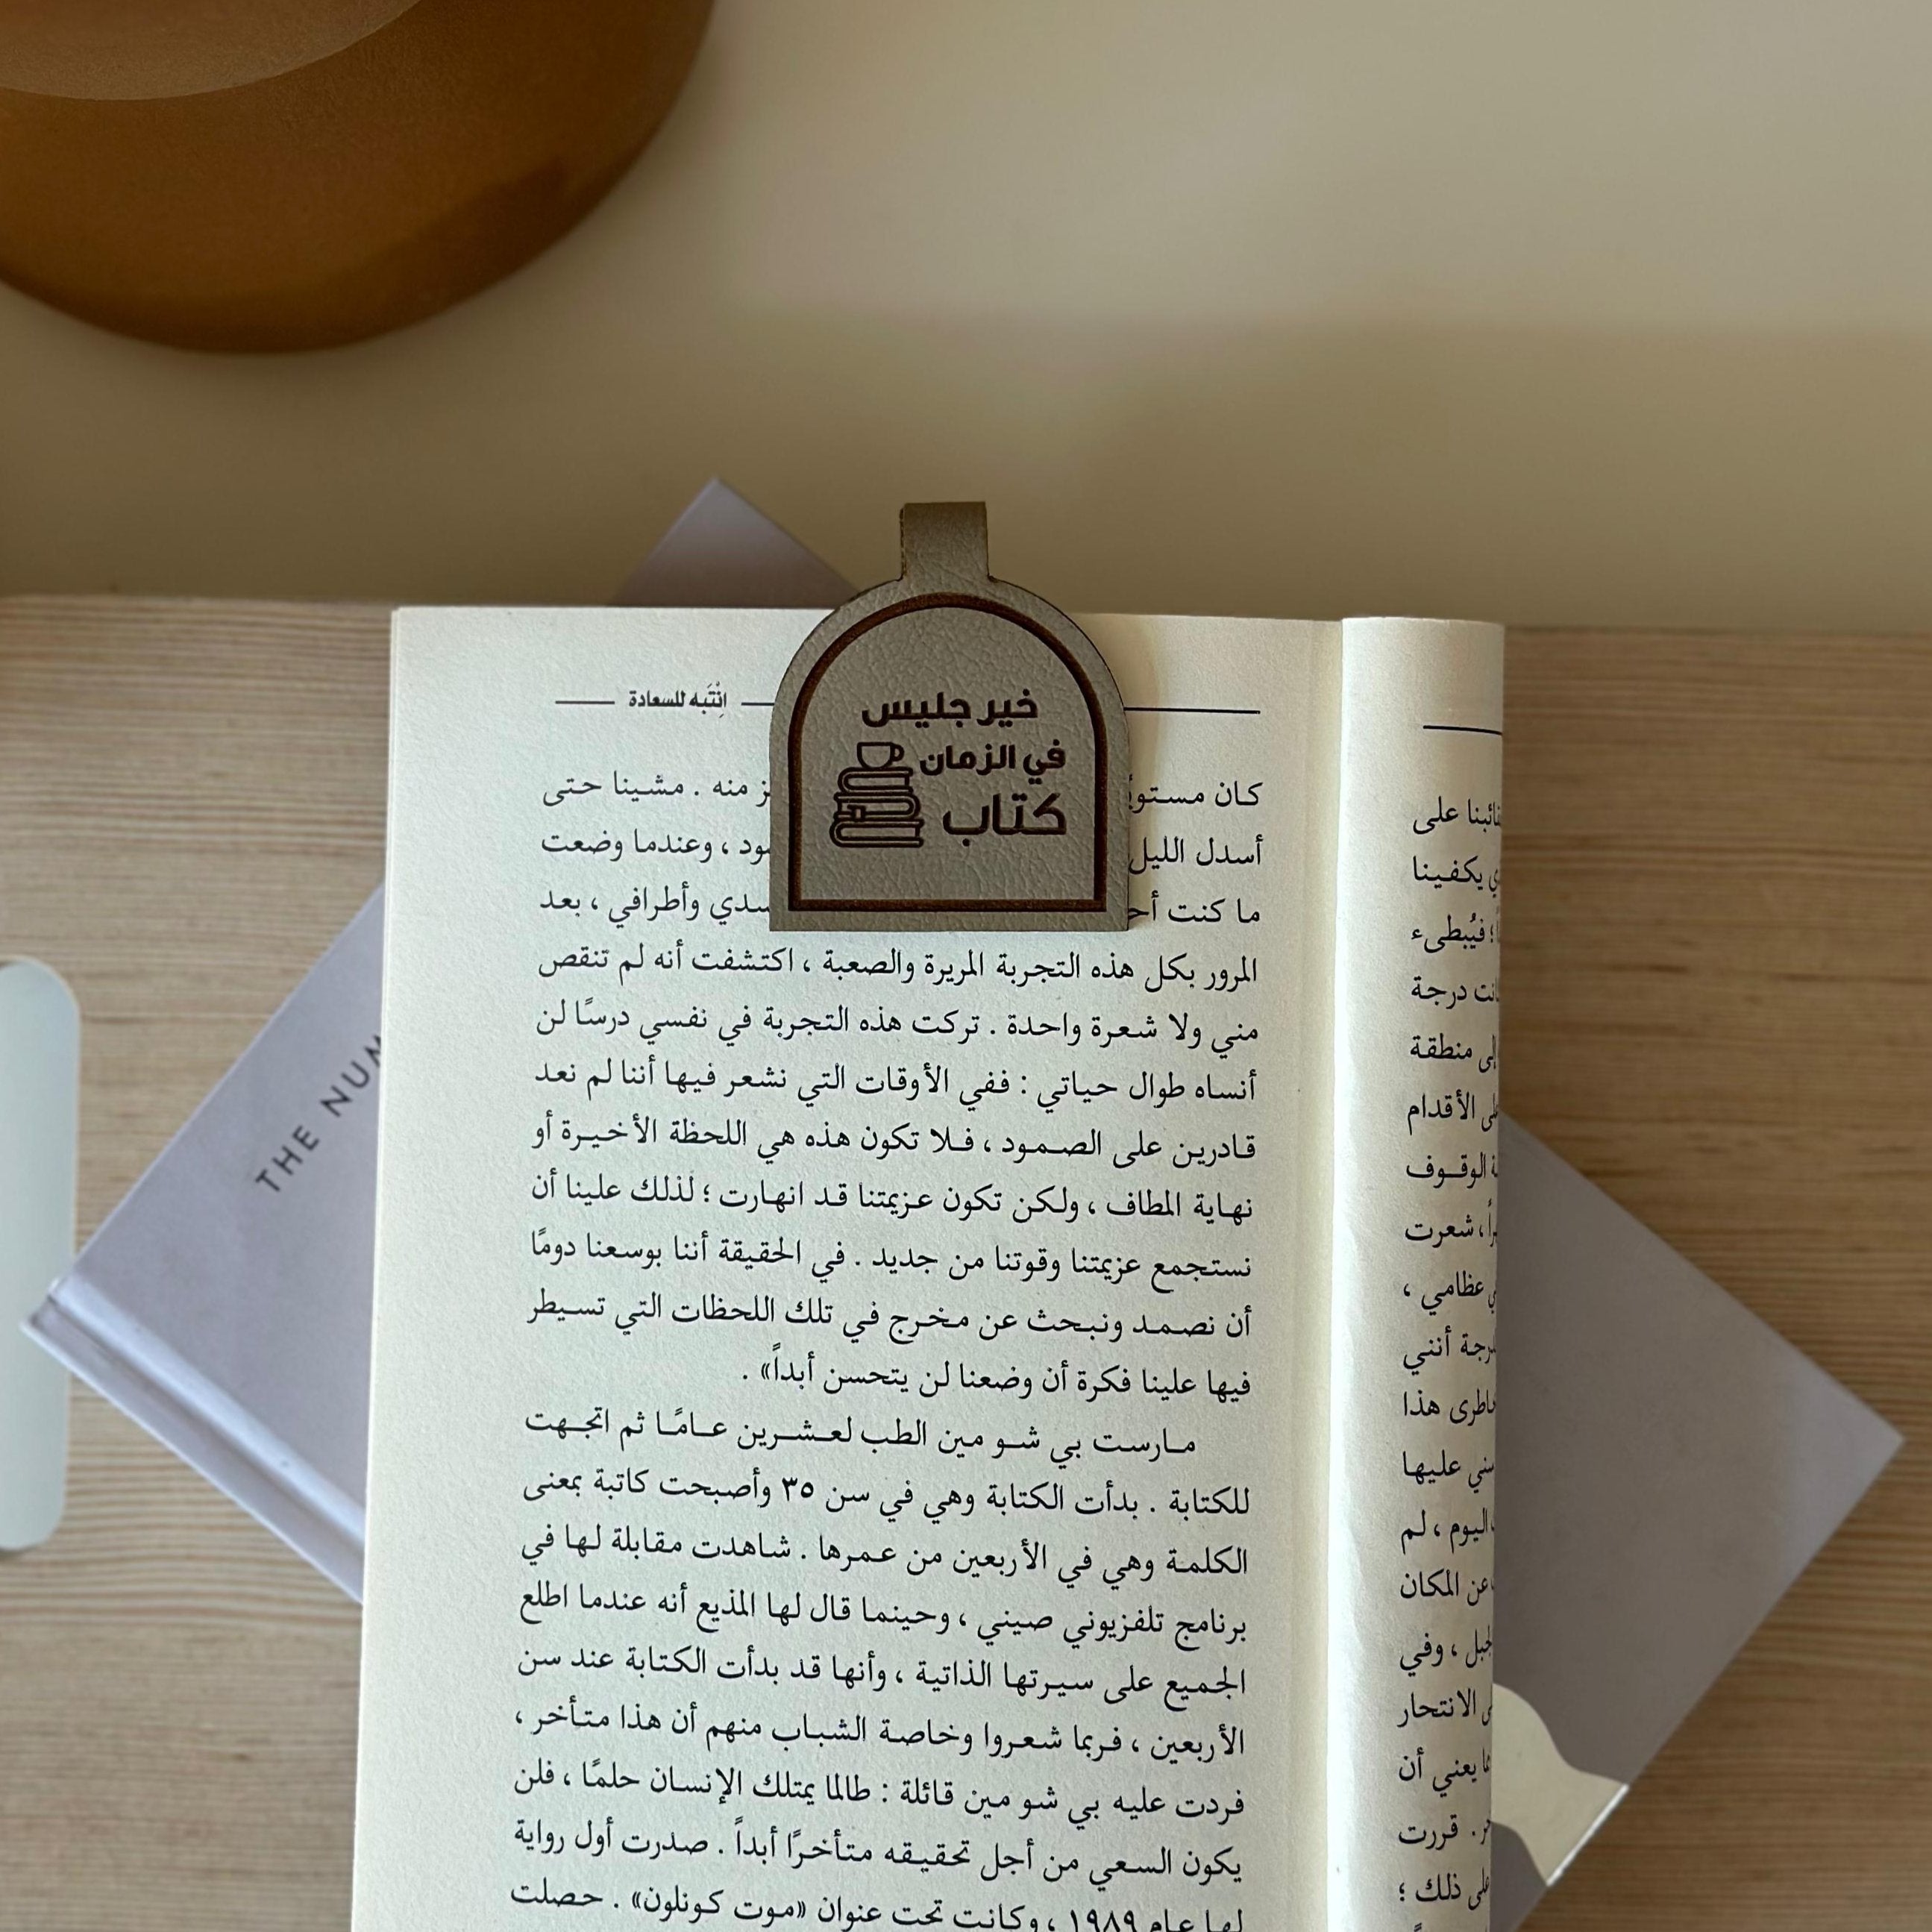 انْتَبِه للسعادة
خير جليس
في الزمان
كتاب
كان مستويً
منه . مشينا حتى
أسدل الليل
، وعندما وضعت
ما كنت
وأطرافي ، بعد
المرور بكل هذه التجربة المريرة والصعبة ، اكتشفت أنه لم تنقص
مني ولا شعرة واحدة . تركت هذه التجربة في نفسي درسًا لن
أنساه طوال حياتي : ففي الأوقات التي نشعر فيها أننا لم نعد
قادرين على الصمود ، فلا تكون هذه هي اللحظة الأخيرة أو
نهاية المطاف ، ولكن تكون عزيمتنا قد انهارت ؛ لذلك علينا أن
نستجمع عزيمتنا وقوتنا من جديد . في الحقيقة أننا بوسعنا دومًا
أن نصمد ونبحث عن مخرج في تلك اللحظات التي تسيطر
فيها علينا فكرة أن وضعنا لن يتحسن أبداً» .
مارست بي شو مين الطب لعشرين عامًا ثم اتجهت
للكتابة . بدأت الكتابة وهي في سن ٣٥ وأصبحت كاتبة بمعنى
الكلمة وهي في الأربعين من عمرها . شاهدت مقابلة لها في
برنامج تلفزيوني صيني ، وحينما قال لها المذيع أنه عندما اطلع
الجميع على سيرتها الذاتية ، وأنها قد بدأت الكتابة عند سن
الأربعين ، فربما شعروا وخاصة الشباب منهم أن هذا متأخر ،
فردت عليه بي شو مين قائلة : طالما يمتلك الإنسان حلمًا ، فلن
يكون السعي من أجل تحقيقه متأخرًا أبداً . صدرت أول رواية
لها عام ١٩٨٩ ، وكانت تحت عنوان «موت كونلون» . حصلت
على
يكفينا
؛ فيُبطىء
درجة
منطقة
الأقدام
الوقوف
، شعرت
عظامي ،
أنني
هذا
عليها
اليوم ، لم
عن المكان
، وفي
الانتحار
يعني أن
. قررت
ذلك ؛
THE